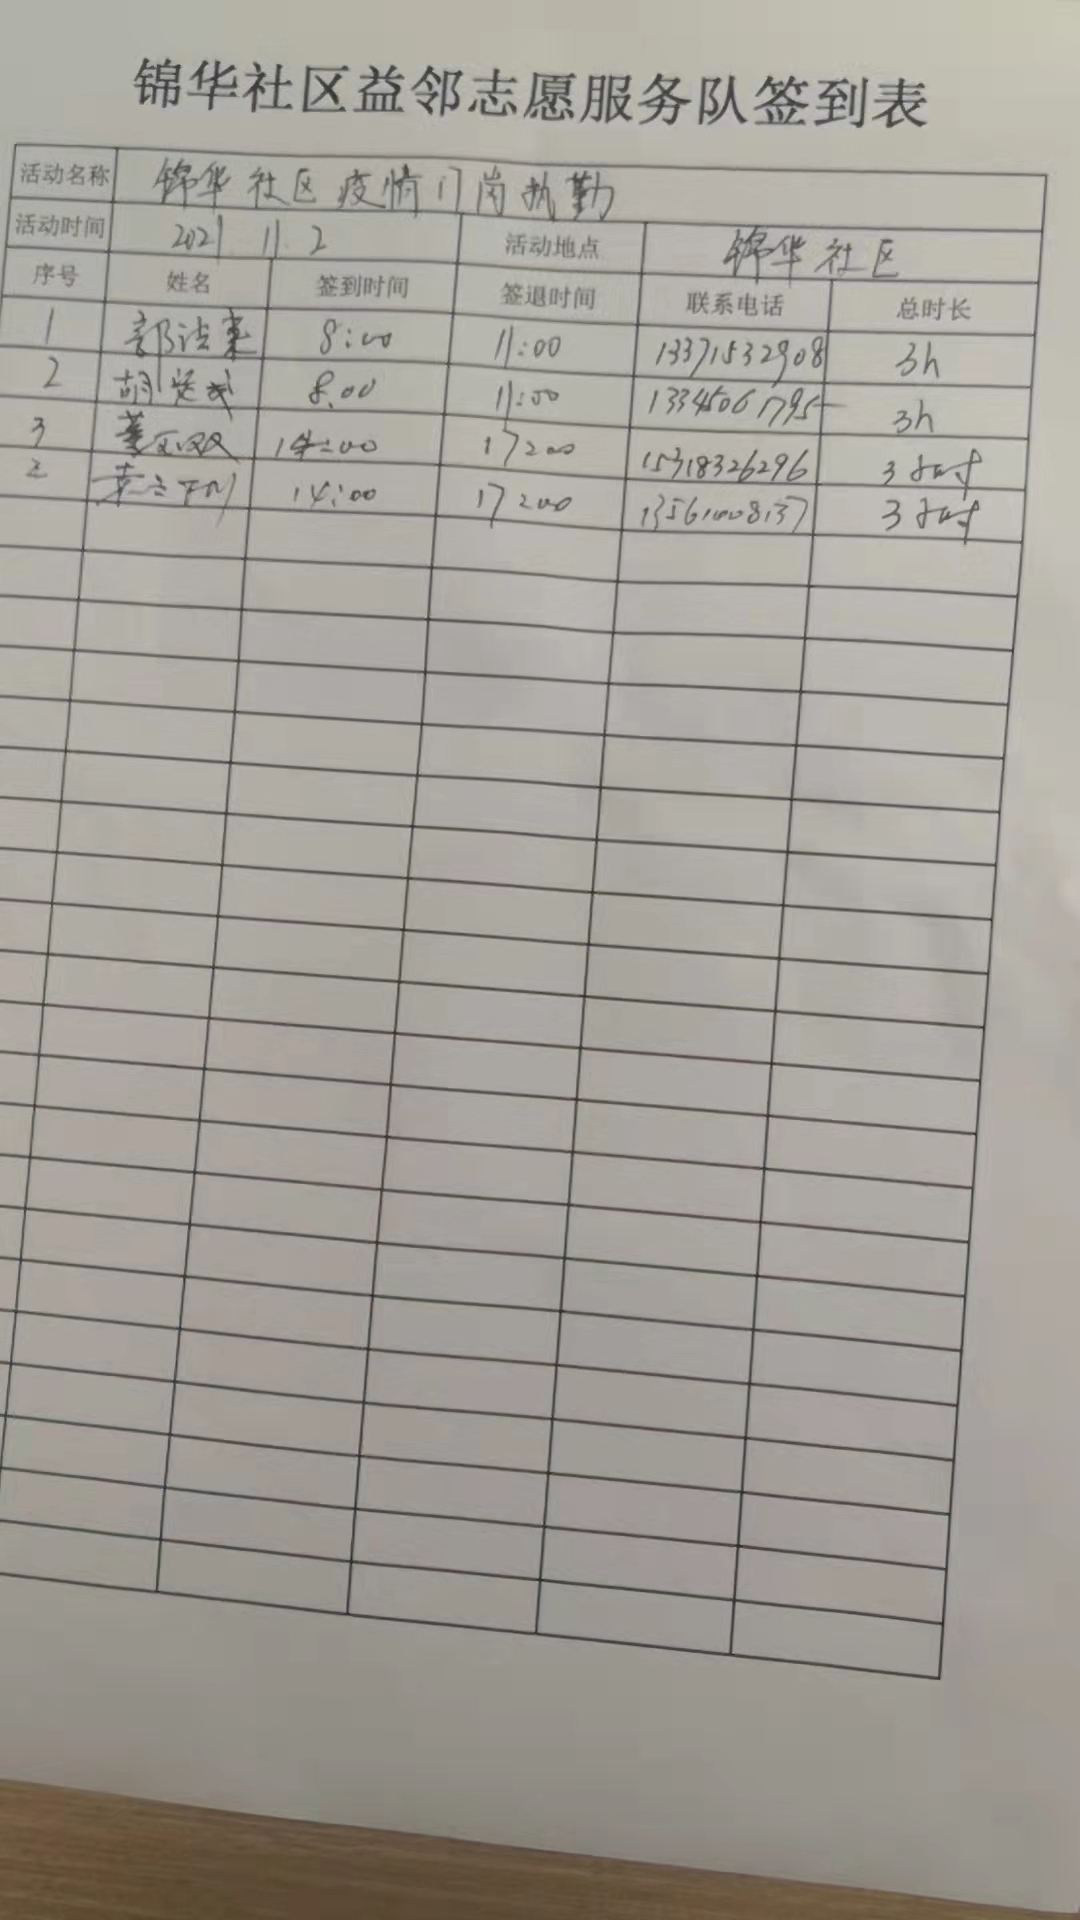 锦华社区益邻志愿服务队签到表
活动名称 锦华社区疫情门岗执勤
活动时间 2021.11.2 活动地点 锦华社区
序号 姓名 签到时间 签退时间 联系电话 总时长
1 郭洁 8:00 11:00 13371532908 3h
2 胡 8:00 11:00 13345061795 3h
3 董 14:00 17:00 15318326296 3小时
14:00 17:00 13561008137 3小时